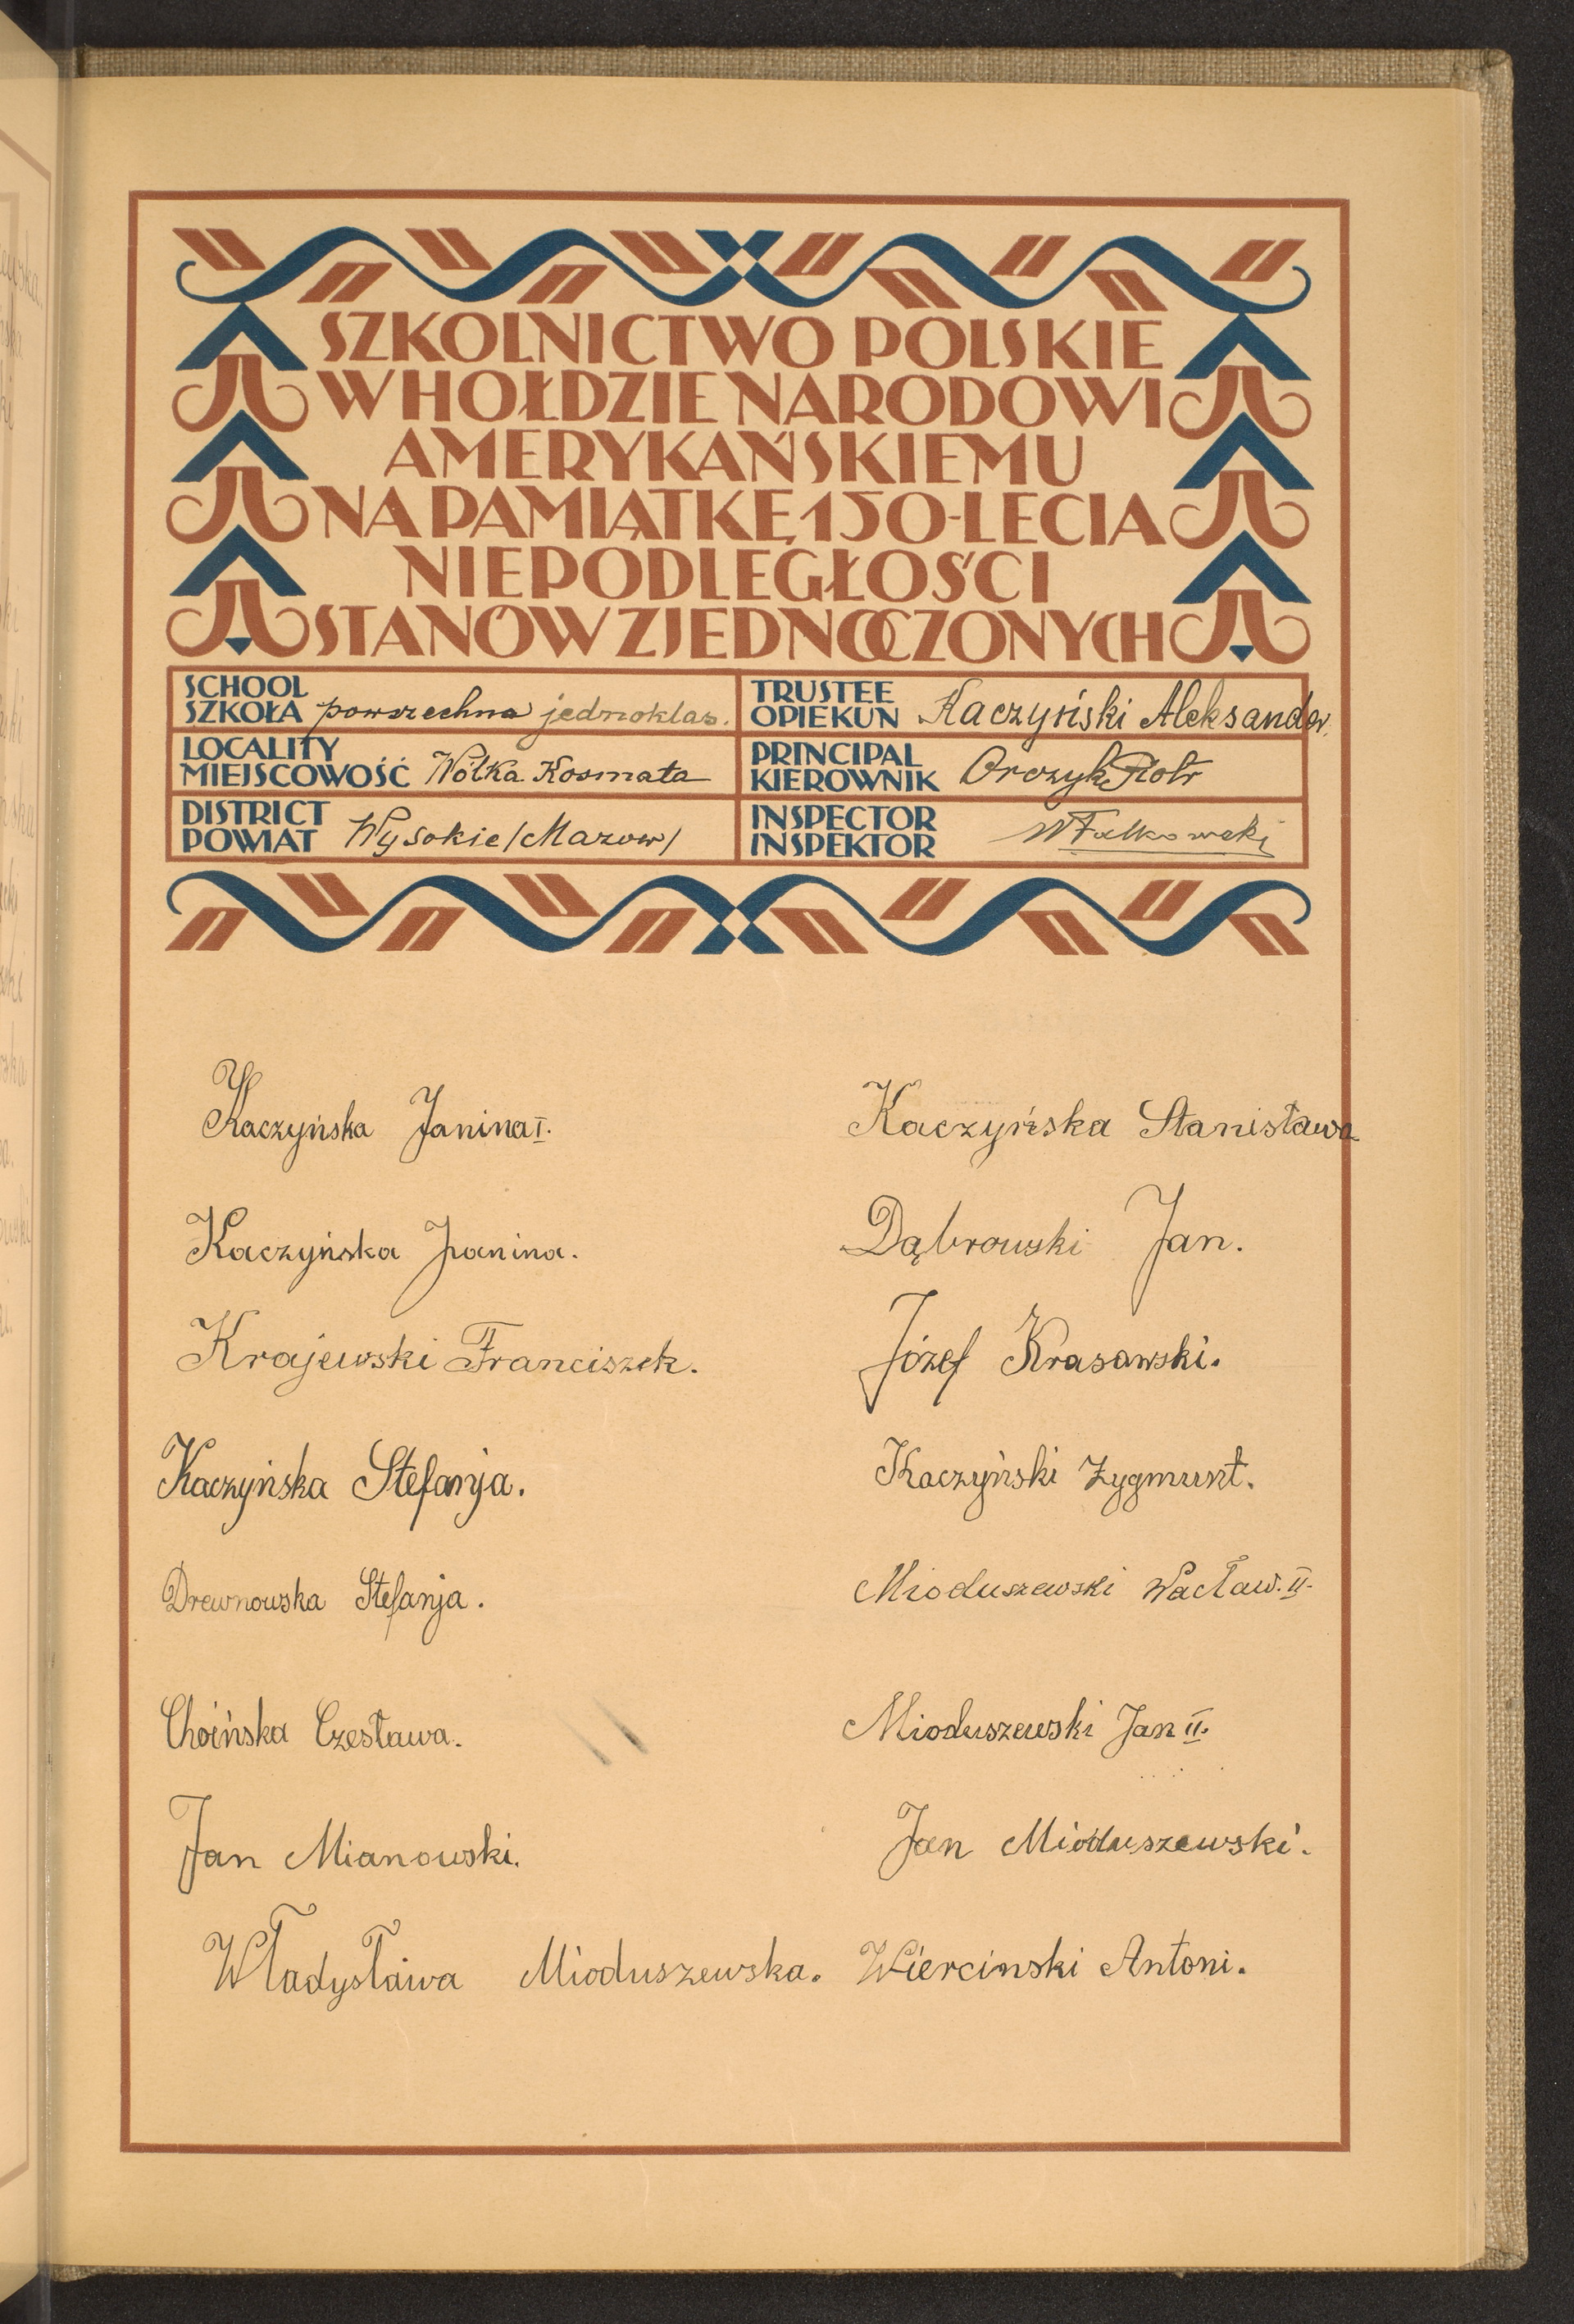 SZKOLNICTWO POLSKIE
W HOŁDZIE NARODOWI
AMERYKAŃSKIEMU
NA PAMIĄTKĘ 150-LECIA
NIEPODLEGŁOŚCI
STANÓW ZJEDNOCZONYCH
SCHOOL
SZKOŁA powszechna jednoklas.
TRUSTEE
OPIEKUN Kaczyński Aleksander.
LOCALITY
MIEJSCOWOŚĆ Wólka Kosmata
PRINCIPAL
KIEROWNIK Orczyk Piotr
DISTRICT
POWIAT Wysokie /Mazow/
INSPECTOR
INSPEKTOR WFalkowski
Kaczyńska Janina I.
Kaczyńska Janina.
Krajewski Franciszek.
Kaczyńska Stefanja.
Drewnowska Stefanja.
Choińska Czesława.
Jan Mianowski.
Władysława Mioduszewska.
Kaczyńska Stanisława
Dąbrowski Jan.
Józef Krasowski.
Kaczyński Zygmunt.
Mioduszewski Wacław. II.
Mioduszewski Jan II.
Jan Mioduszewski.
Wiercinski Antoni.